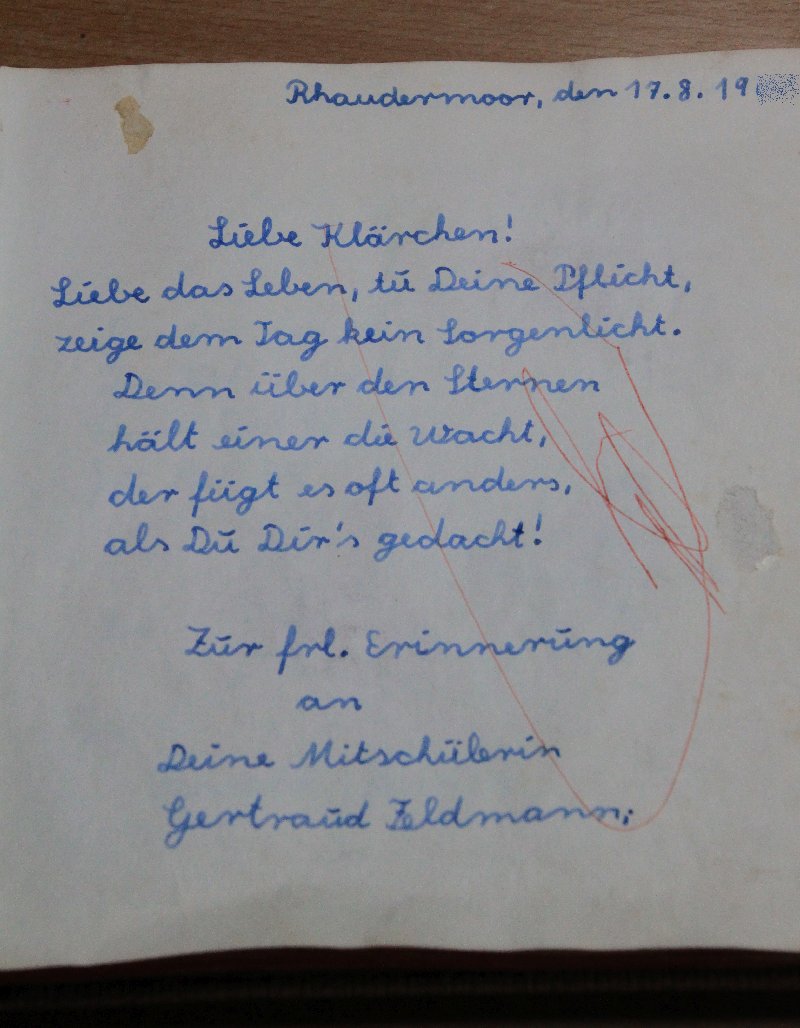 Rhaudermoor, den 17.8.19
Liebe Klärchen!
Liebe das Leben, tu Deine Pflicht,
zeige dem Tag kein Sorgenlicht.
Denn über den Sternen
hält einer die Wacht,
der fügt es oft anders,
als Du Dir's gedacht!
Zur frl. Erinnerung
an
Deine Mitschülerin
Gertraud Feldmann;